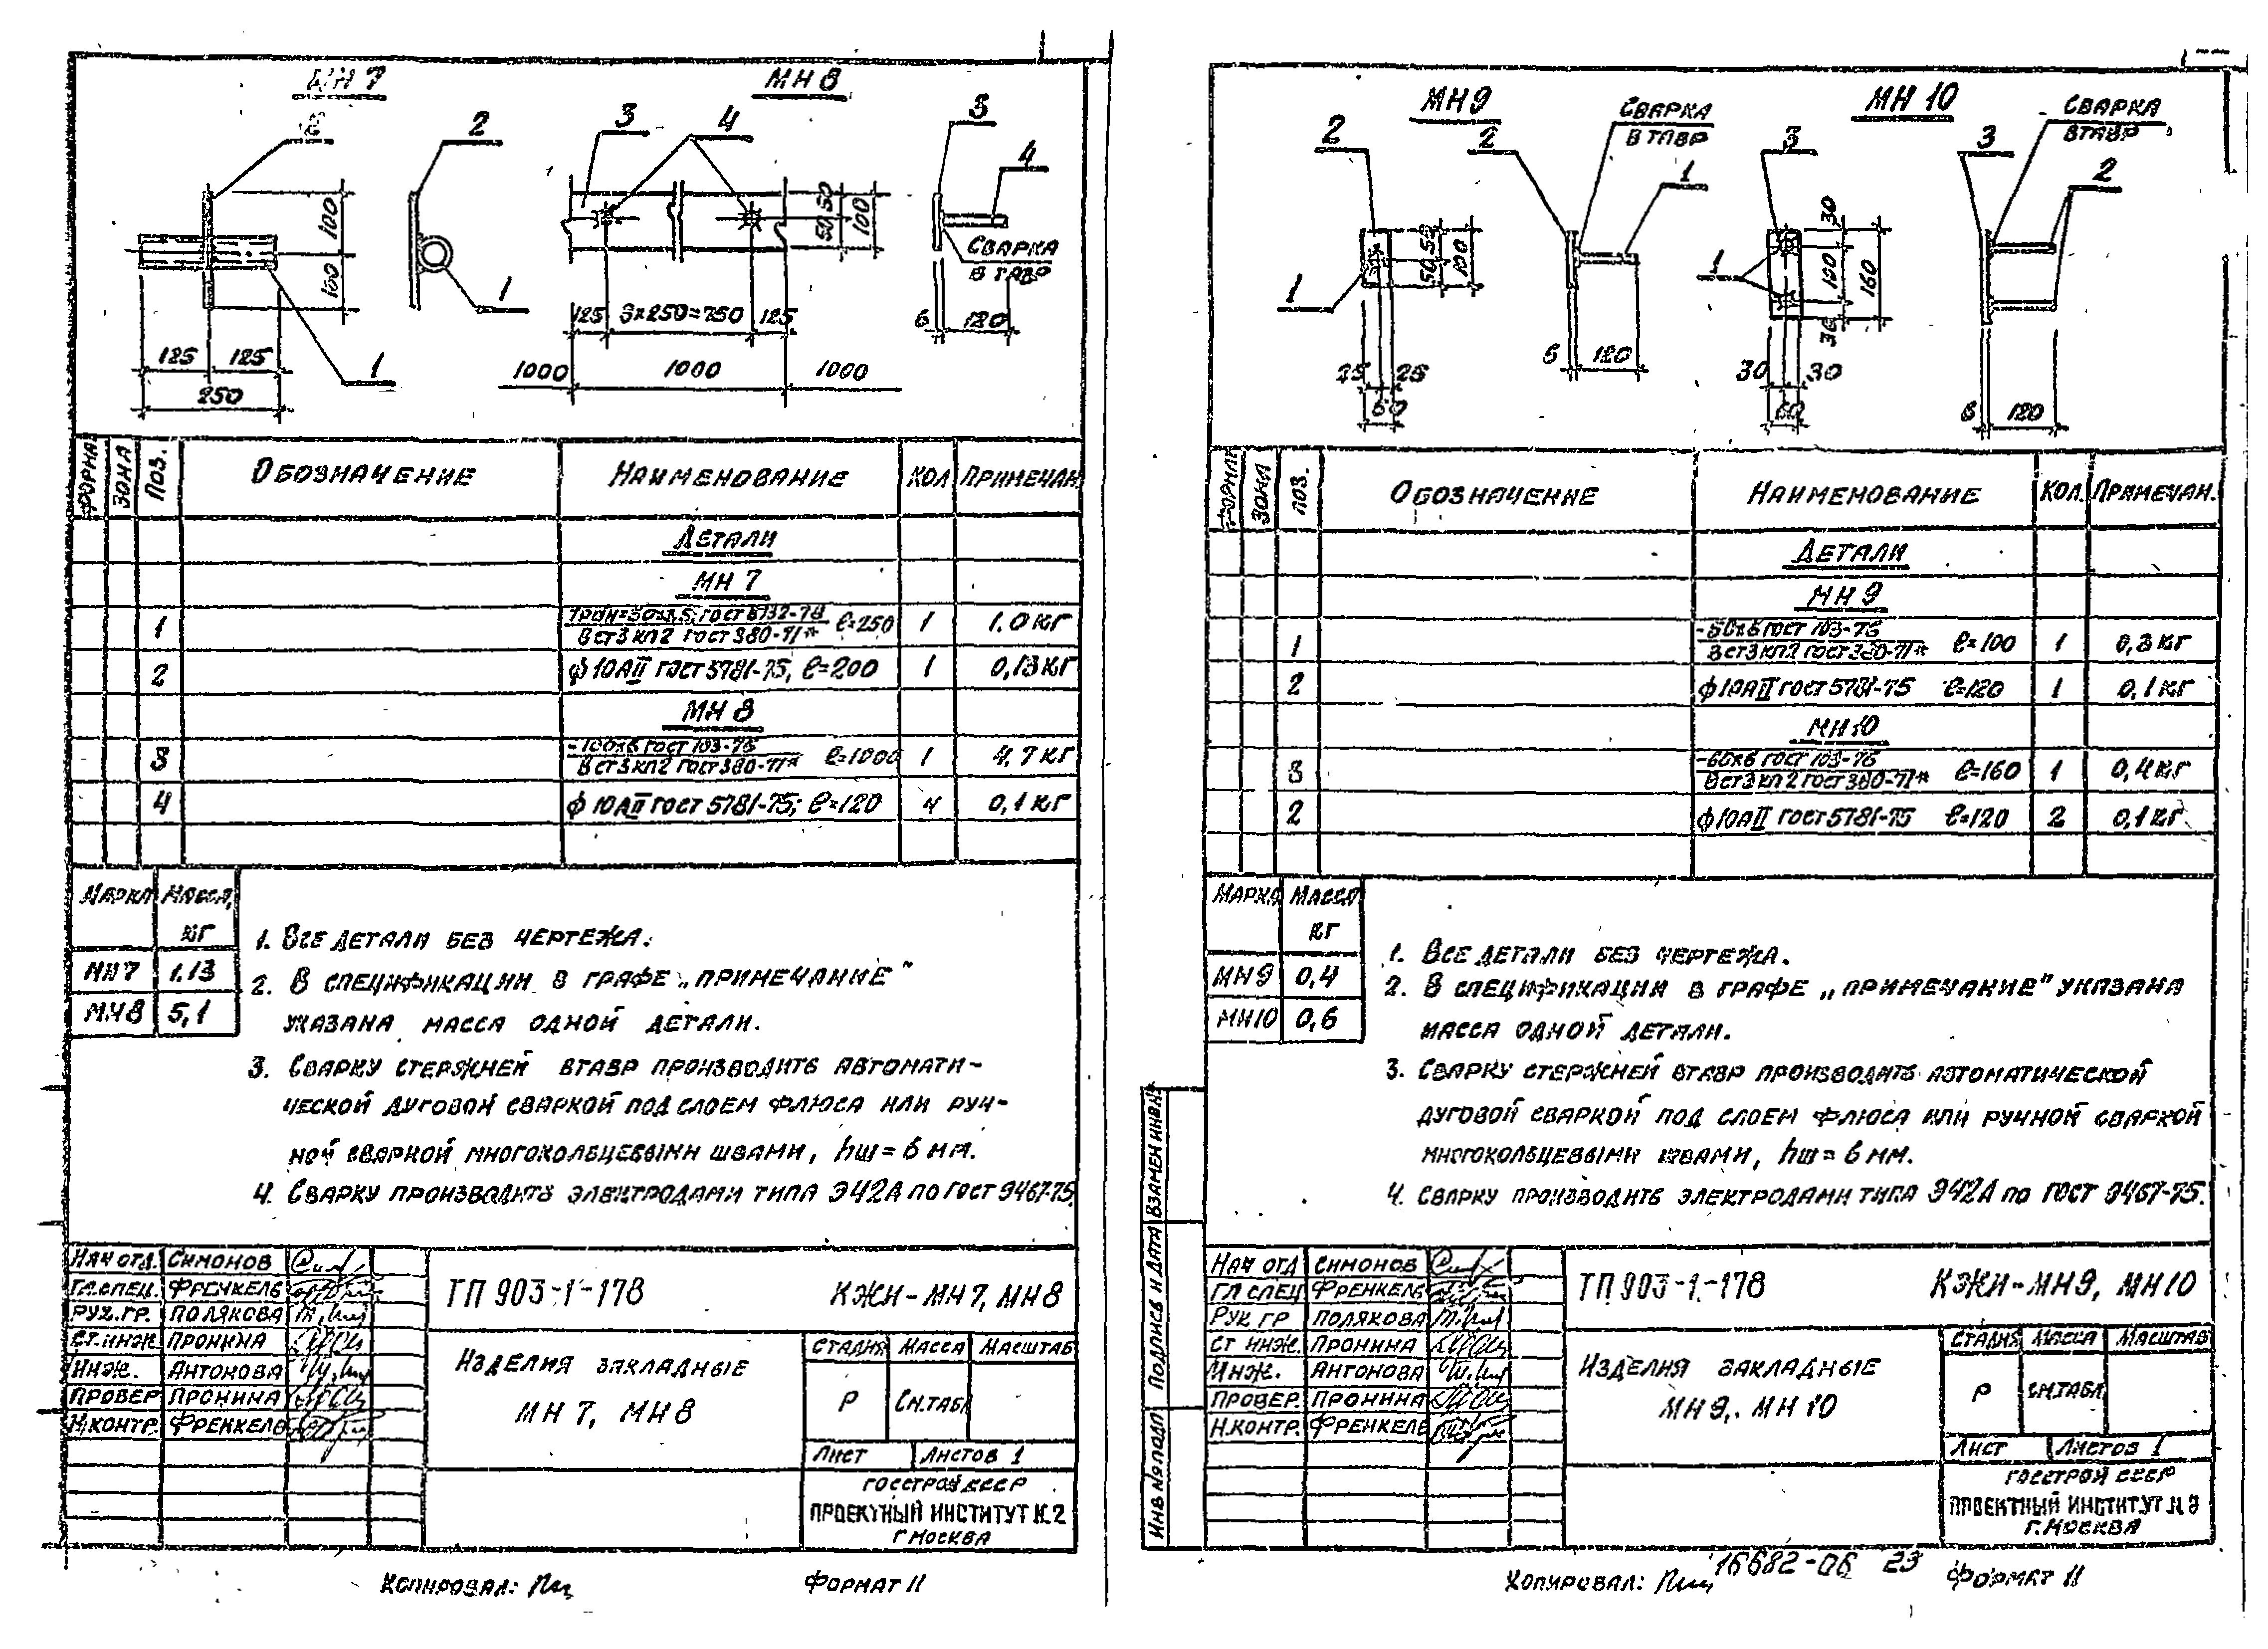 МН 7
МН 8
2
2
3
4
3
4
1
1
100
100
125
125
250
50 50
100
СВАРКА
В ТАВР
125
3×250=750
125
6
120
1000
1000
1000
ФОРМАТ
ЗОНА
ПОЗ.
ОБОЗНАЧЕНИЕ
НАИМЕНОВАНИЕ
КОЛ
ПРИМЕЧАН.
ДЕТАЛИ
МН 7
1 ГОСТ 8732-78 ℓ=250 1 1.0 КГ
ВСт3КП2 ГОСТ 380-71*
2 ф10АII ГОСТ 5781-75, ℓ=200 1 0,13 КГ
МН 8
3 -100×6 ГОСТ 103-76 ℓ=1000 1 4,7 КГ
ВСт3КП2 ГОСТ 380-71*
4 ф10АII ГОСТ 5781-75; ℓ=120 4 0,1 КГ
МАРКА МАССА,
КГ
МН7 1.13
МН8 5,1
1. ВСЕ ДЕТАЛИ БЕЗ ЧЕРТЕЖА.
2. В СПЕЦИФИКАЦИИ В ГРАФЕ „ПРИМЕЧАНИЕ"
УКАЗАНА МАССА ОДНОЙ ДЕТАЛИ.
3. СВАРКУ СТЕРЖНЕЙ ВТАВР ПРОИЗВОДИТЬ АВТОМАТИ-
ЧЕСКОЙ ДУГОВОЙ СВАРКОЙ ПОД СЛОЕМ ФЛЮСА ИЛИ РУЧ-
НОЙ СВАРКОЙ МНОГОКОЛЬЦЕВЫМИ ШВАМИ, hш = 6 мм.
4. СВАРКУ ПРОИЗВОДИТЬ ЭЛЕКТРОДАМИ ТИПА Э42А ПО ГОСТ 9467-75.
НАЧ ОТД. СИМОНОВ
ГЛ.СПЕЦ. ФРЕНКЕЛЬ
РУК.ГР. ПОЛЯКОВА
СТ.ИНЖ. ПРОНИНА
ИНЖ. АНТОНОВА
ПРОВЕР ПРОНИНА
Н.КОНТР. ФРЕНКЕЛЬ
ТП 903-1-178
КЖИ-МН7, МН8
ИЗДЕЛИЯ ЗАКЛАДНЫЕ
МН 7, МН 8
СТАДИЯ МАССА МАСШТАБ
Р СМ.ТАБЛ
ЛИСТ ЛИСТОВ 1
ГОССТРОЙ СССР
ПРОЕКТНЫЙ ИНСТИТУТ №2
Г.МОСКВА
КОПИРОВАЛ:
ФОРМАТ 11
МН9
МН 10
2
2
СВАРКА
ВТАВР
1
1
3
3
СВАРКА
ВТАВР
2
1
50 50
100
25 25
50
6
120
30
100
30
160
30 30
60
6
120
ФОРМАТ
ЗОНА
ПОЗ.
ОБОЗНАЧЕНИЕ
НАИМЕНОВАНИЕ
КОЛ.
ПРИМЕЧАН.
ДЕТАЛИ
МН 9
1 -50×6 ГОСТ 103-76 ℓ=100 1 0,3 КГ
ВСт3КП2 ГОСТ 380-71*
2 ф10АII ГОСТ 5781-75 ℓ=120 1 0,1 КГ
МН10
3 -60×6 ГОСТ 103-76 ℓ=160 1 0,4 КГ
ВСт3КП2 ГОСТ 380-71*
2 ф10АII ГОСТ 5781-75 ℓ=120 2 0,1 КГ
МАРКА МАССА
КГ
МН9 0,4
МН10 0,6
1. ВСЕ ДЕТАЛИ БЕЗ ЧЕРТЕЖА.
2. В СПЕЦИФИКАЦИИ В ГРАФЕ „ПРИМЕЧАНИЕ" УКАЗАНА
МАССА ОДНОЙ ДЕТАЛИ.
3. СВАРКУ СТЕРЖНЕЙ ВТАВР ПРОИЗВОДИТЬ АВТОМАТИЧЕСКОЙ
ДУГОВОЙ СВАРКОЙ ПОД СЛОЕМ ФЛЮСА ИЛИ РУЧНОЙ СВАРКОЙ
МНОГОКОЛЬЦЕВЫМИ ШВАМИ, hш = 6 мм.
4. СВАРКУ ПРОИЗВОДИТЬ ЭЛЕКТРОДАМИ ТИПА Э42А ПО ГОСТ 9467-75.
ИНВ № ПОДЛ
ПОДПИСЬ И ДАТА
ВЗАМЕН ИНВ №
НАЧ ОТД СИМОНОВ
ГЛ СПЕЦ ФРЕНКЕЛЬ
РУК ГР ПОЛЯКОВА
СТ ИНЖ. ПРОНИНА
ИНЖ. АНТОНОВА
ПРОВЕР. ПРОНИНА
Н.КОНТР. ФРЕНКЕЛЬ
ТП 903-1-178
КЖИ-МН9, МН10
ИЗДЕЛИЯ ЗАКЛАДНЫЕ
МН 9, МН 10
СТАДИЯ МАССА МАСШТАБ
Р СМ.ТАБЛ
ЛИСТ ЛИСТОВ 1
ГОССТРОЙ СССР
ПРОЕКТНЫЙ ИНСТИТУТ
Г.МОСКВА
КОПИРОВАЛ:
16682-06 23
ФОРМАТ 11